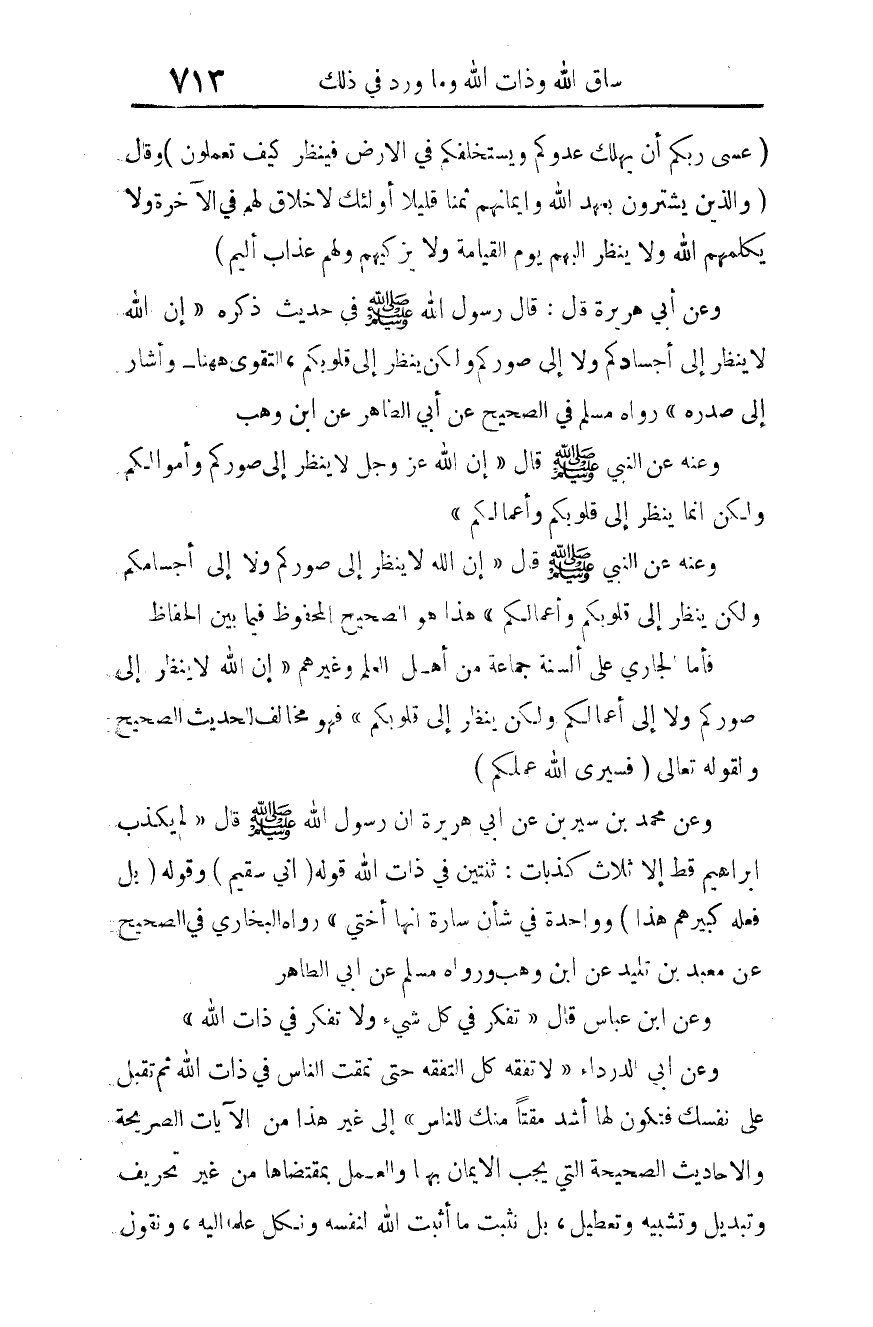 ساق الله وذات الله وما ورد في ذلك ٧١٣
( عسى ربكم أن يهلك عدوكم ويستخلفكم في الارض فينظر كيف تعملون ) وقال
( والذين يشترون بعهد الله وايمانهم ثمنا قليلا أولئك لاخلاق لهم في الآخرة ولا
يكلمهم الله ولا ينظر اليهم يوم القيامة ولا يزكيهم ولهم عذاب أليم )
وعن أبي هريرة قال : قال رسول الله ﷺ في حديث ذكره « إن الله
لا ينظر إلى أجسادكم ولا إلى صوركم ولكن ينظر إلى قلوبكم ، التقوى ههنا ـ وأشار
إلى صدره » رواه مسلم في الصحيح عن أبي الطاهر عن ابن وهب
وعنه عن النبي ﷺ قال « إن الله عز وجل لا ينظر إلى صوركم وأموالكم
ولكن انما ينظر إلى قلوبكم وأعمالكم »
وعنه عن النبي ﷺ قال « إن الله لا ينظر إلى صوركم ولا إلى أجسامكم
ولكن ينظر إلى قلوبكم وأعمالكم » هذا هو الصحيح المحفوظ فيما بين الحفاظ
فأما الجاري على ألسنة جماعة من أهل العلم وغيرهم « إن الله لا ينظر إلى
صوركم ولا إلى أعمالكم ولكن ينظر إلى قلوبكم » فهو مخالف الحديث الصحيح
ولقوله تعالى ( فسيرى الله عملكم )
وعن محمد بن سيرين عن ابي هريرة ان رسول الله ﷺ قال « لم يكذب
ابراهيم قط إلا ثلاث كذبات : ثنتين في ذات الله قوله ( اني سقيم ) وقوله ( بل
فعله كبيرهم هذا ) وواحدة في شأن سارة انها أختي » رواه البخاري في الصحيح
عن معبد بن تليد عن ابن وهب ورواه مسلم عن ابي الطاهر
وعن ابن عباس قال « تفكر في كل شيء ولا تفكر في ذات الله »
وعن ابي الدرداء « لا تفقه كل التفقه حتى تمقت الناس في ذات الله ثم تقبل
على نفسك فتكون لها أشد مقتاً منك للناس » إلى غير هذا من الآيات الصريحة
والاحاديث الصحيحة التي يجب الايمان بها والعمل بمقتضاها من غير تحريف
وتبديل وتشبيه وتعطيل ، بل نثبت ما أثبت الله لنفسه ونكل علمه اليه ، ونقول